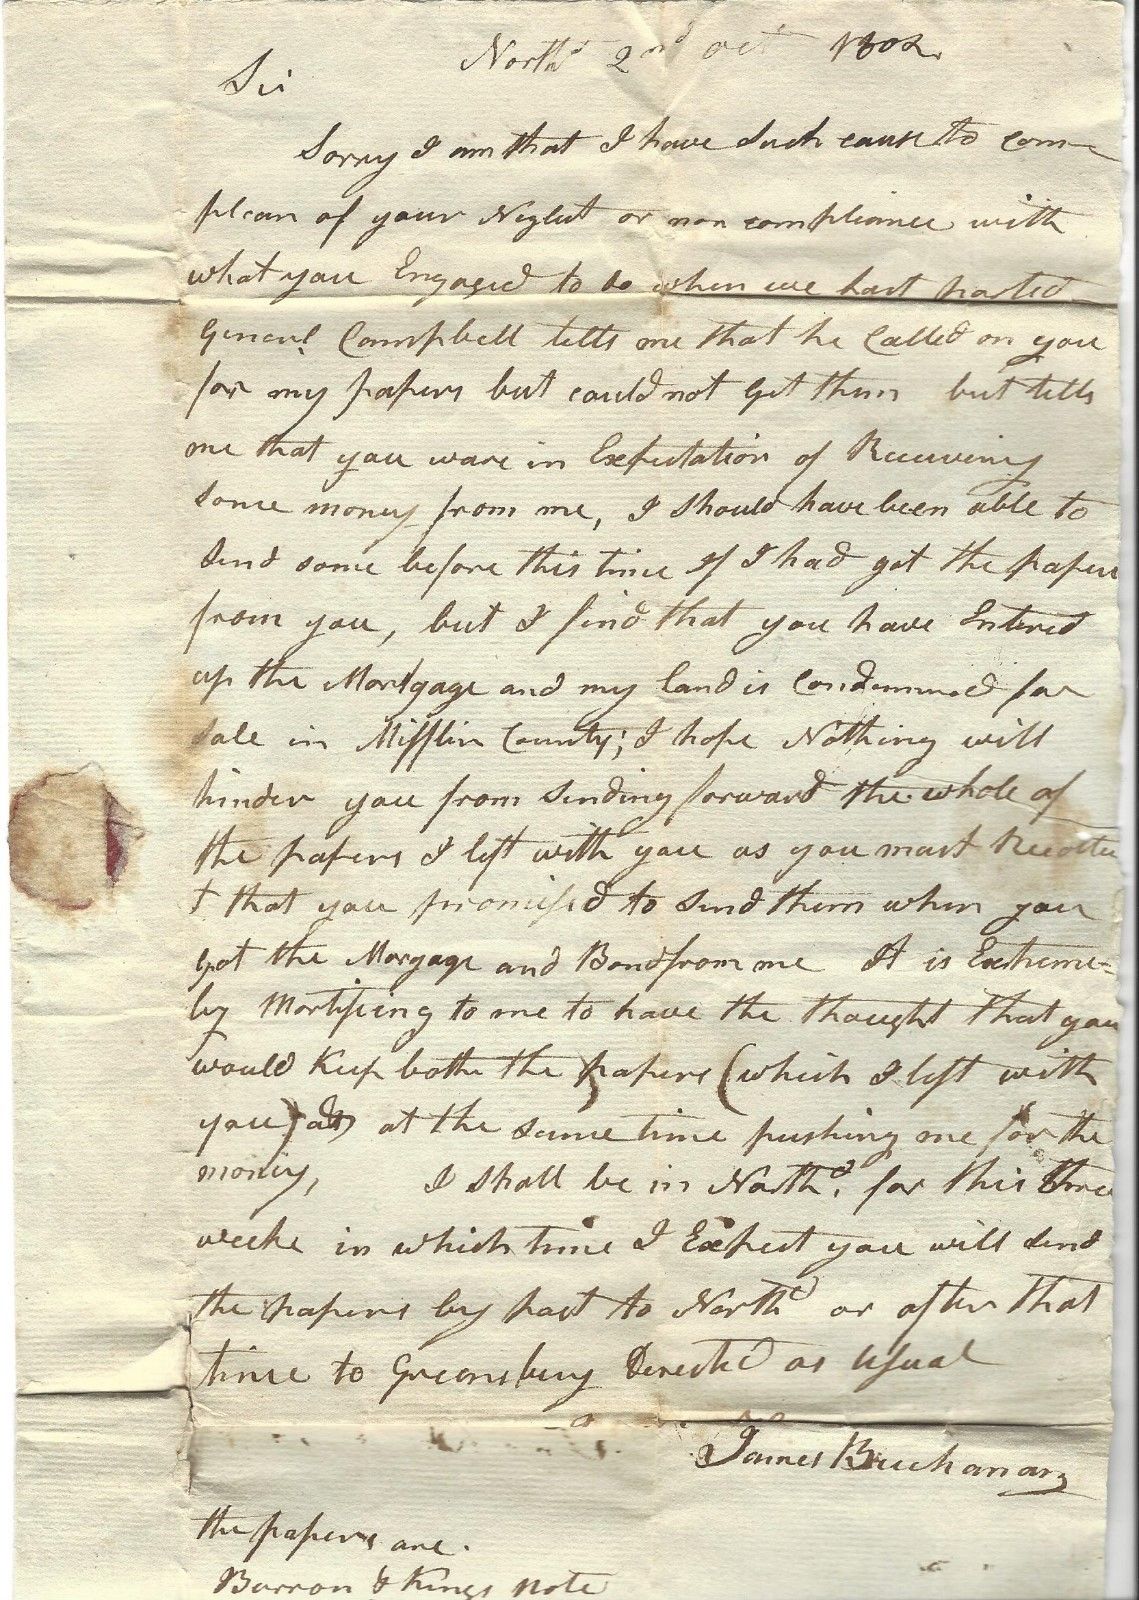 North^d 2nd oct 1802
Sir
Sorry I am that I have Such cause to com=
plean of your Neglect or non compliance with
what you Engaged to do when we last parted
General Campbell tells me that he Called on you
for my papers but could not get them but tells
me that you ware in Expectation of Receiveing
some money from me, I should have been able to
Send some before this time If I had got the papers
from you, but I find that you have Entered
up the Mortgage and my land is Condemned for
Sale in Mifflin County; I hope Nothing will
hinder you from Sending forward the whole of
the papers I left with you as you must Recollec
t that you promised to Send them when you
got the Morgage and Bond from me It is Extreme=
ly Mortifieing to me to have the thought that you
would Keep bothe the papers (which I left with
you) at the same time pushing me for the
money, I shall be in North^d. for this three
weeke in which time I Expect you will Send
the papers by post to North^d or after that
time to Greensburg Derected as Usual
James Buchanan
the papers are.
Barron & Kings Note